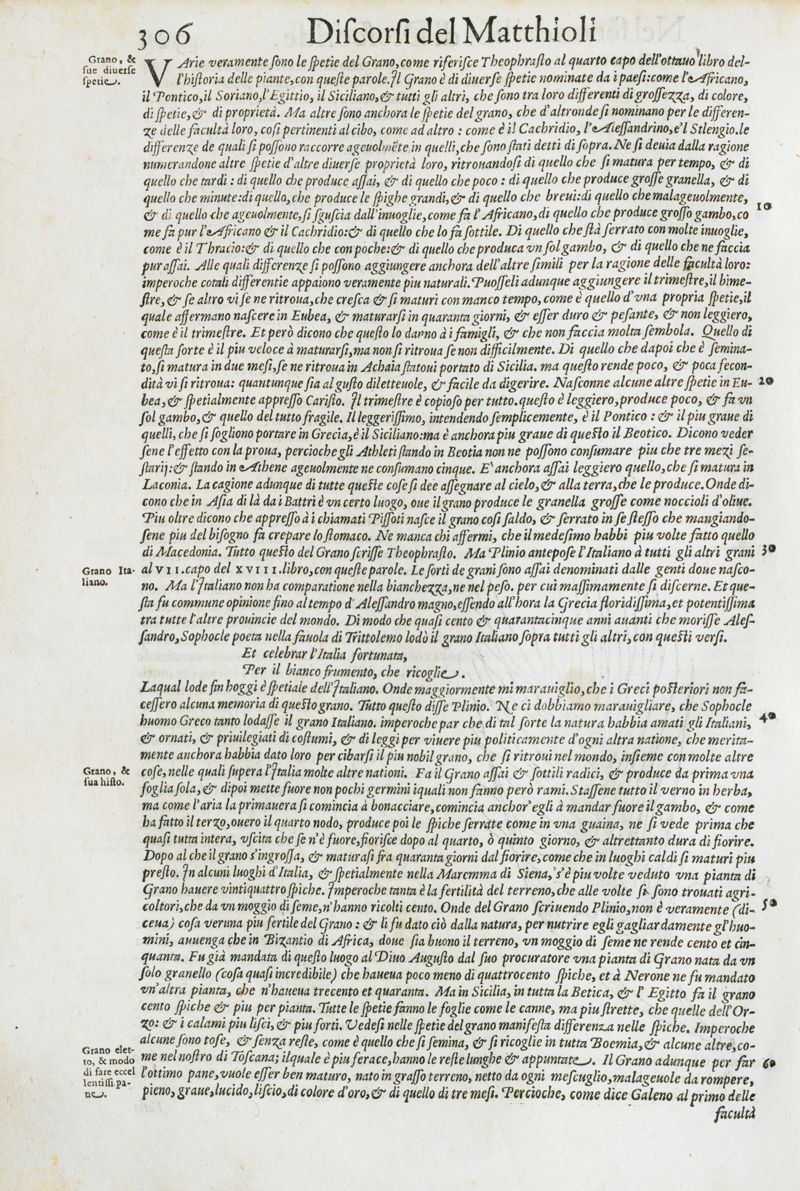 306 Diſcorſi del Matthioli
Grano, &
ſue diuerſe
ſpetie.
VArie veramente ſono le ſpetie del Grano, come riferiſce Theophraſto al quarto capo dell'ottauo libro del-
l'hiſtoria delle piante, con queſte parole. Il Grano è di diuerſe ſpetie nominate da i paeſi: come l'Affricano,
il Pontico, il Soriano, l'Egittio, il Siciliano, & tutti gli altri, che ſono tra loro differenti di groſſezza, di colore,
di ſpetie, & di proprietà. Ma altre ſono anchora le ſpetie del grano, che d'altronde ſi nominano per le differen-
ze delle facultà loro, coſi pertinenti al cibo, come ad altro: come è il Cachridio, l'Aleſſandrino, e'l Stlengio. le
differenze de quali ſi poſſono raccorre ageuolmēte in quelli, che ſono ſtati detti di ſopra. Ne ſi deuia dalla ragione
numerandone altre ſpetie d'altre diuerſe proprietà loro, ritrouandoſi di quello che ſi matura per tempo, & di
quello che tardi: di quello che produce aſſai, & di quello che poco: di quello che produce groſſe granella, & di
quello che minute: di quello, che produce le ſpighe grandi, & di quello che breui: di quello che malageuolmente,
10
& di quello che ageuolmente, ſi ſguſcia dall'inuoglie, come fa l'Affricano, di quello che produce groſſo gambo, co
me fa pur l'Affricano & il Cachridio: & di quello che lo fa ſottile. Di quello che ſtà ſerrato con molte inuoglie,
come è il Thracio: & di quello che con poche: & di quello che produca vn ſol gambo, & di quello che ne faccia
pur aſſai. Alle quali differenze ſi poſſono aggiungere anchora dell'altre ſimili per la ragione delle facultà loro:
imperoche cotali differentie appaiono veramente piu naturali. Puoſſeli adunque aggiungere il trimeſtre, il bime-
ſtre, & ſe altro vi ſe ne ritroua, che creſca & ſi maturi con manco tempo, come è quello d'vna propria ſpetie, il
quale affermano naſcere in Eubea, & maturarſi in quaranta giorni, & eſſer duro & peſante, & non leggiero,
come è il trimeſtre. Et però dicono che queſto lo darno à i famigli, & che non faccia molta ſembola. Quello di
queſta ſorte è il piu veloce à maturarſi, ma non ſi ritroua ſe non difficilmente. Di quello che dapoi che è ſemina-
to, ſi matura in due meſi, ſe ne ritroua in Achaia ſtatoui portato di Sicilia. ma queſto rende poco, & poca fecon-
dità vi ſi ritroua: quantunque ſia al guſto diletteuole, & facile da digerire. Naſconne alcune altre ſpetie in Eu-
20
bea, & ſpetialmente appreſſo Cariſto. Il trimeſtre è copioſo per tutto. queſto è leggiero, produce poco, & fa vn
ſol gambo, & quello del tutto fragile. Il leggeriſſimo, intendendo ſemplicemente, è il Pontico: & il piu graue di
quelli, che ſi ſogliono portare in Grecia, è il Siciliano: ma è anchora piu graue di queſto il Beotico. Dicono veder
ſene l'effetto con la proua, percioche gli Athleti ſtando in Beotia non ne poſſono conſumare piu che tre mezi ſe-
ſtarij: & ſtando in Athene ageuolmente ne conſumano cinque. E' anchora aſſai leggiero quello, che ſi matura in
Laconia. La cagione adunque di tutte queſte coſe ſi dee aſſegnare al cielo, & alla terra, che le produce. Onde di-
cono che in Aſia di là da i Battri è vn certo luogo, oue il grano produce le granella groſſe come noccioli d'oliue.
Piu oltre dicono che appreſſo à i chiamati Piſſoti naſce il grano coſi ſaldo, & ſerrato in ſe ſteſſo che mangiando-
ſene piu del biſogno fa crepare lo ſtomaco. Ne manca chi affermi, che il medeſimo habbi piu volte fatto quello
di Macedonia. Tutto queſto del Grano ſcriſſe Theophraſto. Ma Plinio antepoſe l'Italiano à tutti gli altri grani
30
Grano Ita-
liano.
al VII. capo del XVIII. libro, con queſte parole. Le ſorti de grani ſono aſſai denominati dalle genti doue naſco-
no. Ma l'Italiano non ha comparatione nella bianchezza, ne nel peſo. per cui maſſimamente ſi diſcerne. Et que-
ſta fu commune opinione fino al tempo d'Aleſſandro magno, eſſendo all'hora la Grecia floridiſſima, et potentiſſima
tra tutte l'altre prouincie del mondo. Di modo che quaſi cento & quarantacinque anni auanti che moriſſe Aleſ-
ſandro, Sophocle poeta nella fauola di Trittolemo lodò il grano Italiano ſopra tutti gli altri, con queſti verſi.
Et celebrar l'Italia fortunata,
Per il bianco frumento, che ricoglie.
Laqual lode fin hoggi è ſpetiale dell'Italiano. Onde maggiormente mi marauiglio, che i Greci poſteriori non fa-
ceſſero alcuna memoria di queſto grano. Tutto queſto diſſe Plinio. Ne ci dobbiamo marauigliare, che Sophocle
huomo Greco tanto lodaſſe il grano Italiano. imperoche par che di tal ſorte la natura habbia amati gli Italiani,
40
& ornati, & priuilegiati di coſtumi, & di leggi per viuere piu politicamente d'ogni altra natione, che merita-
mente anchora habbia dato loro per cibarſi il piu nobil grano, che ſi ritroui nel mondo, inſieme con molte altre
Grano, &
ſua hiſto.
coſe, nelle quali ſupera l'Italia molte altre nationi. Fa il Grano aſſai & ſottili radici, & produce da prima vna
foglia ſola, & dipoi mette fuore non pochi germini i quali non fanno però rami. Staſſene tutto il verno in herba,
ma come l'aria la primauera ſi comincia à bonacciare, comincia anchor'egli à mandar fuore il gambo, & come
ha fatto il terzo, ouero il quarto nodo, produce poi le ſpiche ſerrate come in vna guaina, ne ſi vede prima che
quaſi tutta intera, vſcita che ſe n'è fuore, fioriſce dopo al quarto, ò quinto giorno, & altrettanto dura di fiorire.
Dopo al che il grano s'ingroſſa, & maturaſi fra quaranta giorni dal fiorire, come che in luoghi caldi ſi maturi piu
preſto. In alcuni luoghi d'Italia, & ſpetialmente nella Maremma di Siena, s'è piu volte veduto vna pianta di
Grano hauere vintiquattro ſpiche. Imperoche tanta è la fertilità del terreno, che alle volte ſi ſono trouati agri-
coltori, che da vn moggio di ſeme, n'hanno ricolti cento. Onde del Grano ſcriuendo Plinio, non è veramente (di-
50
ceua) coſa veruna piu fertile del Grano: & li fu dato ciò dalla natura, per nutrire egli gagliardamente gl'huo-
mini, auuenga che in Bizantio di Africa, doue ſia buono il terreno, vn moggio di ſeme ne rende cento et cin-
quanta. Fu già mandata di queſto luogo al Diuo Auguſto dal ſuo procuratore vna pianta di Grano nata da vn
ſolo granello (coſa quaſi incredibile) che haueua poco meno di quattrocento ſpiche, et à Nerone ne fu mandato
vn'altra pianta, che n'haueua trecento et quaranta. Ma in Sicilia, in tutta la Betica, & l'Egitto fa il grano
cento ſpiche & piu per pianta. Tutte le ſpetie fanno le foglie come le canne, ma piu ſtrette, che quelle dell'Or-
zo: & i calami piu liſci, & piu forti. Vedeſi nelle ſpetie del grano manifeſta differenza nelle ſpiche. Imperoche
alcune ſono toſe, & ſenza reſte, come è quello che ſi ſemina, & ſi ricoglie in tutta Boemia, & alcune altre, co-
Grano elet-
to, & modo
di fare eccel
lentiſſi pa-
ne.
me nel noſtro di Toſcana; ilquale è piu ferace, hanno le reſte lunghe & appuntate. Il Grano adunque per far
60
l'ottimo pane, vuole eſſer ben maturo, nato in graſſo terreno, netto da ogni meſcuglio, malageuole da rompere,
pieno, graue, lucido, liſcio, di colore d'oro, & di quello di tre meſi. Percioche, come dice Galeno al primo delle
facultà